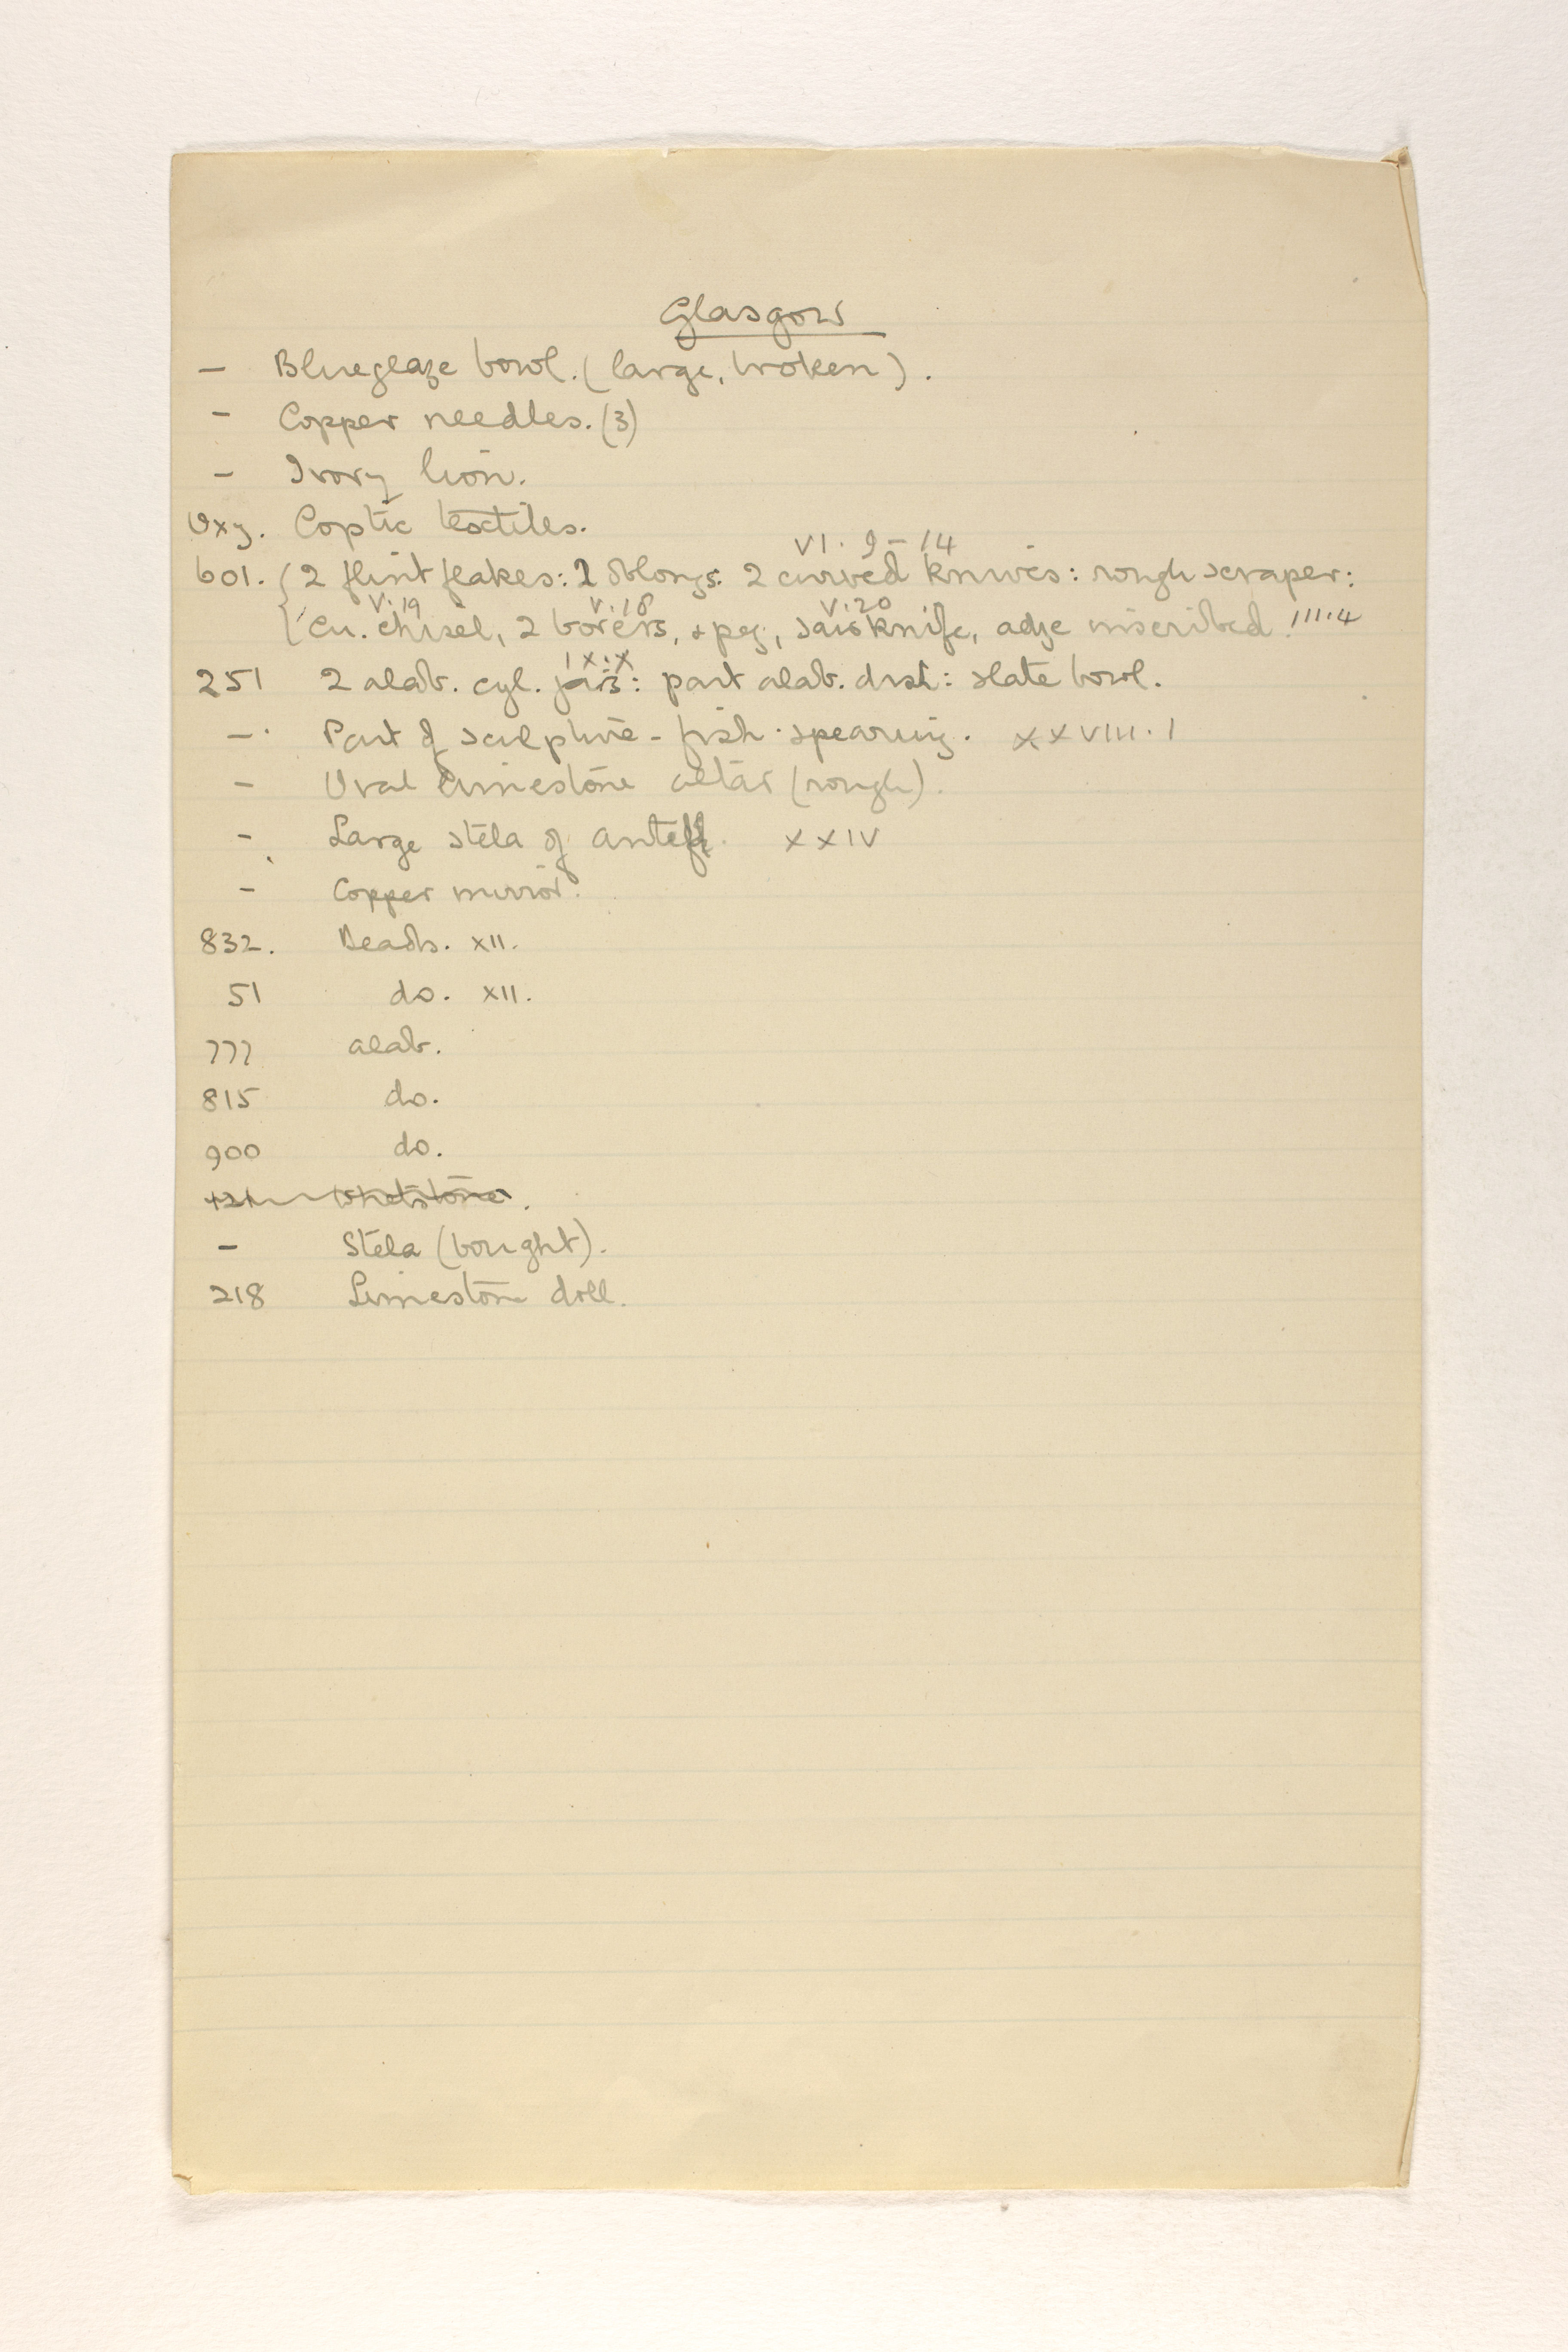 Glasgow
– Blue glaze bowl. (large, broken).
– Copper needles. (3)
– Ivory lion.
Oxy. Coptic textiles.
VI. 9 – 14
601. { 2 flint flakes: 2 oblongs: 2 curved knives: rough scraper:
V. 19 V. 18 V. 20
Cu. chisel, 2 borers, & peg, knife, adze inscribed! III. 4
IX. X
251 2 alab. cyl. jars: part alab. dish: slate bowl.
– Part of sculpture – fish-spearing. XXVIII. 1
– Oval limestone altar (rough).
– Large stela of Antef. XXIV
– Copper mirror.
832. Beads. XII.
51 do. XII.
777 alab.
815 do.
900 do.
whetstone.
– Stela (bought).
218 Limestone doll.